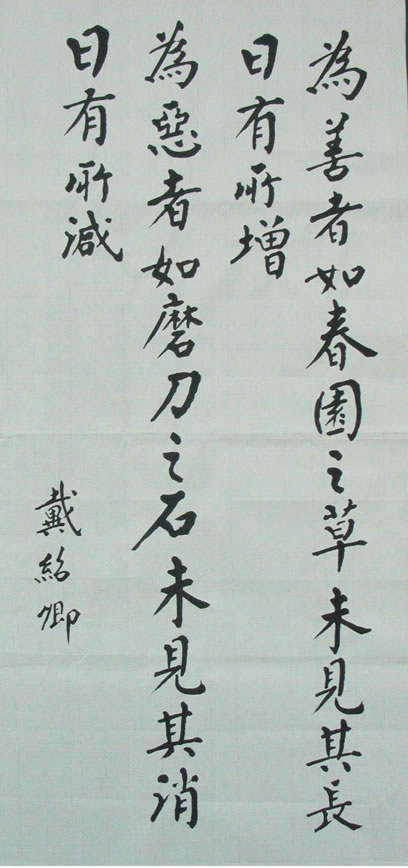 為善者如春園之草未見其長
日有所增
為惡者如磨刀之石未見其消
日有所減
戴紹卿